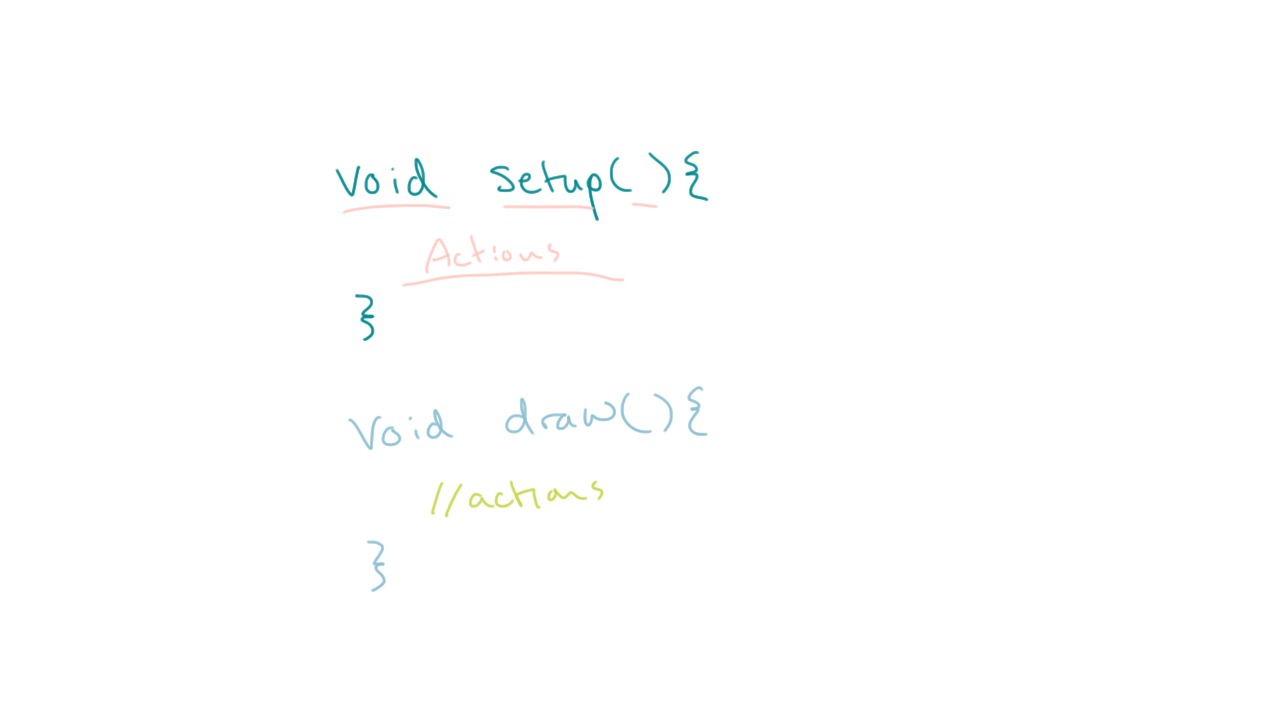 void setup( ){
Actions
}
void draw( ){
//actions
}